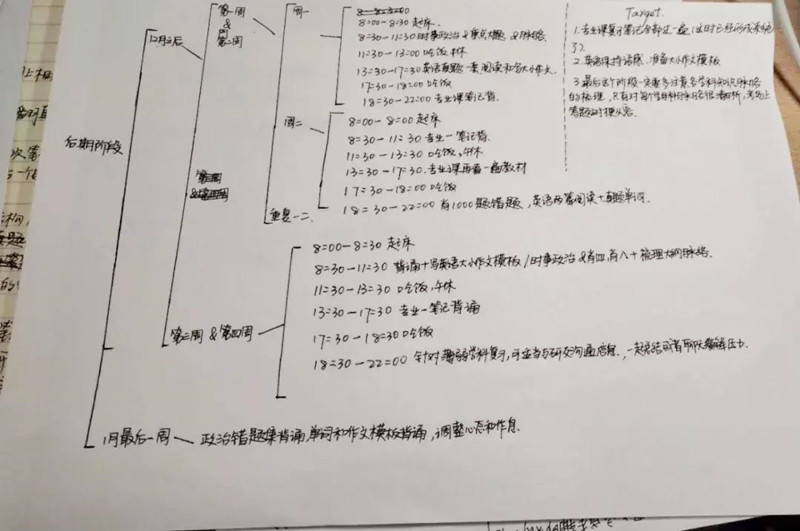 后期阶段
12月之后
第一周
&
第二周
周一
8:00-8:30 起床
8:30-11:30 时事政治&重点大题&脉络
11:30-13:00 吃饭,午休
13:30-17:30 英语真题一套,阅读和各大作文
17:30-18:00 吃饭
18:30-22:00 专业课笔记背.
周二
8:00-8:00 起床
8:30-11:30 专业一笔记背.
11:30-13:30 吃饭,午休
13:30-17:30. 专业课再看一遍教材
17:30-18:00 吃饭
18:30-22:00 肖1000题错题,英语两篇阅读+真题单词.
重复一二.
第三周 & 第四周
8:00-8:30 起床
8:30-11:30 背诵+写英语大小作文模板/时事政治&肖四,肖八+梳理大纲脉络.
11:30-13:30 吃饭,午休
13:30-17:30 专业一笔记背诵
17:30-18:30 吃饭
18:30-22:00 针对薄弱学科复习,可适当与研友沟通信息,一起总结
1月最后一周 政治错题集背诵,单词和作文模板背诵,调整心态和作息.
Target.
1. 专业课复习笔记全部过一遍(此时已经形成系统了).
2. 英语保持语感,准备大小作文模板
3. 最后这个阶段一定要多注意各学科知识脉络
的梳理,只有对每个学科的脉络很清晰,考场上
答题时才得心应